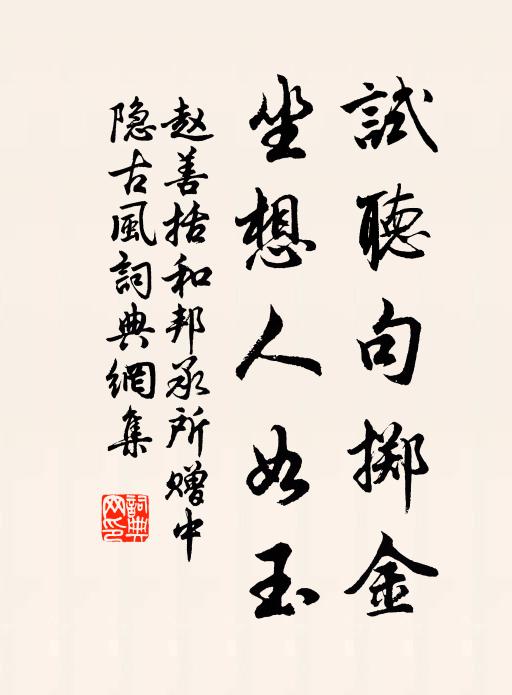 試聽句擲金
坐想人如玉
赵善括和邦承所赠中
隐古風詞典網集
詞典網印